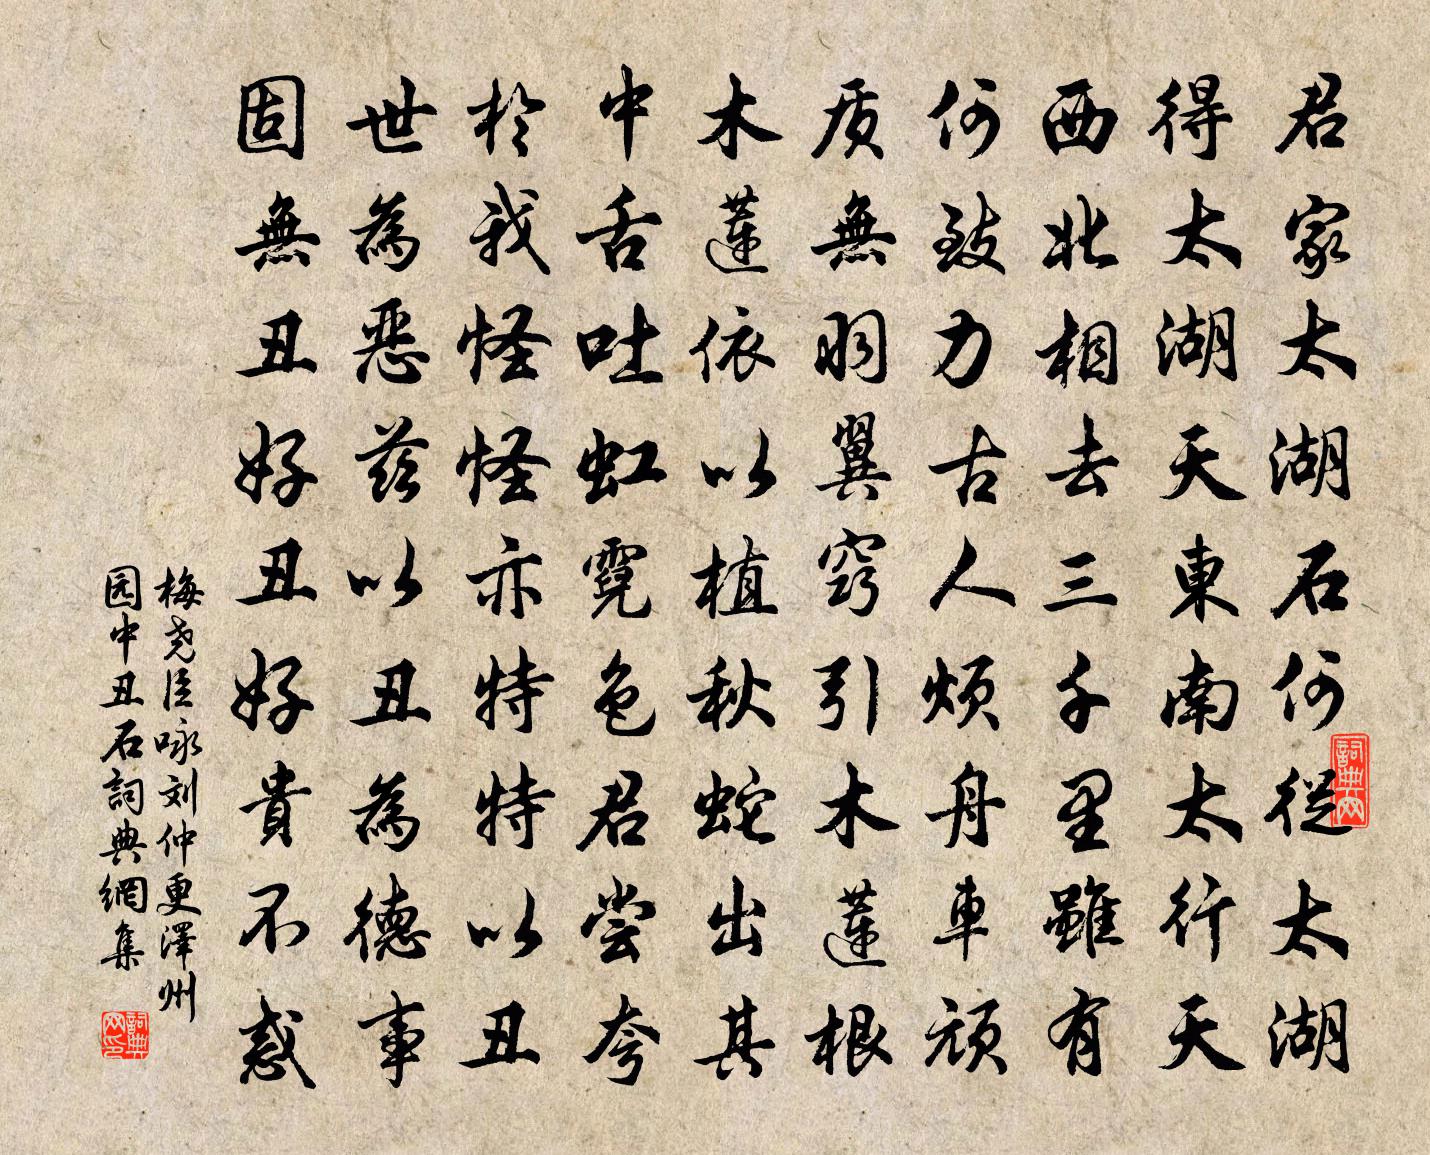 君家太湖石何從太湖
得太湖天東南太行天
西北相去三千里雖有
何致力古人煩舟車頑
质無羽翼窍引木蓮根
木蓮依以植秋蛇出其
中舌吐虹霓色君尝夸
於我怪怪亦特特以丑
世為惡茲以丑為德事
固無丑好丑好貴不惑
梅尧臣咏刘仲更澤州
园中丑石詞典網集
詞典网
詞典网印